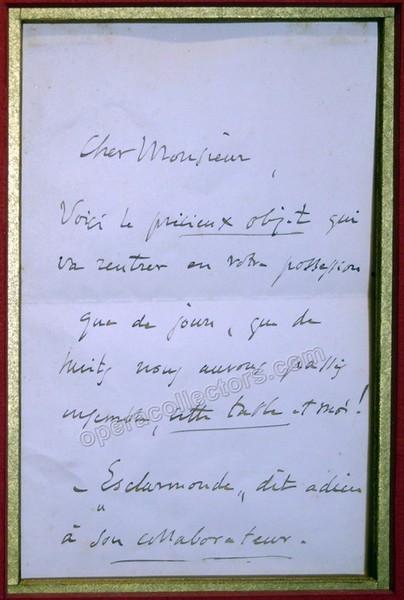 Cher Monsieur,
Voici le précieux objet qui
va rentrer en votre possession
que de jours, que de
nuits nous aurons passés
ensemble, cette table et moi!
operacollectors.com
„ Esclarmonde „ dit adieu
à son collaborateur.